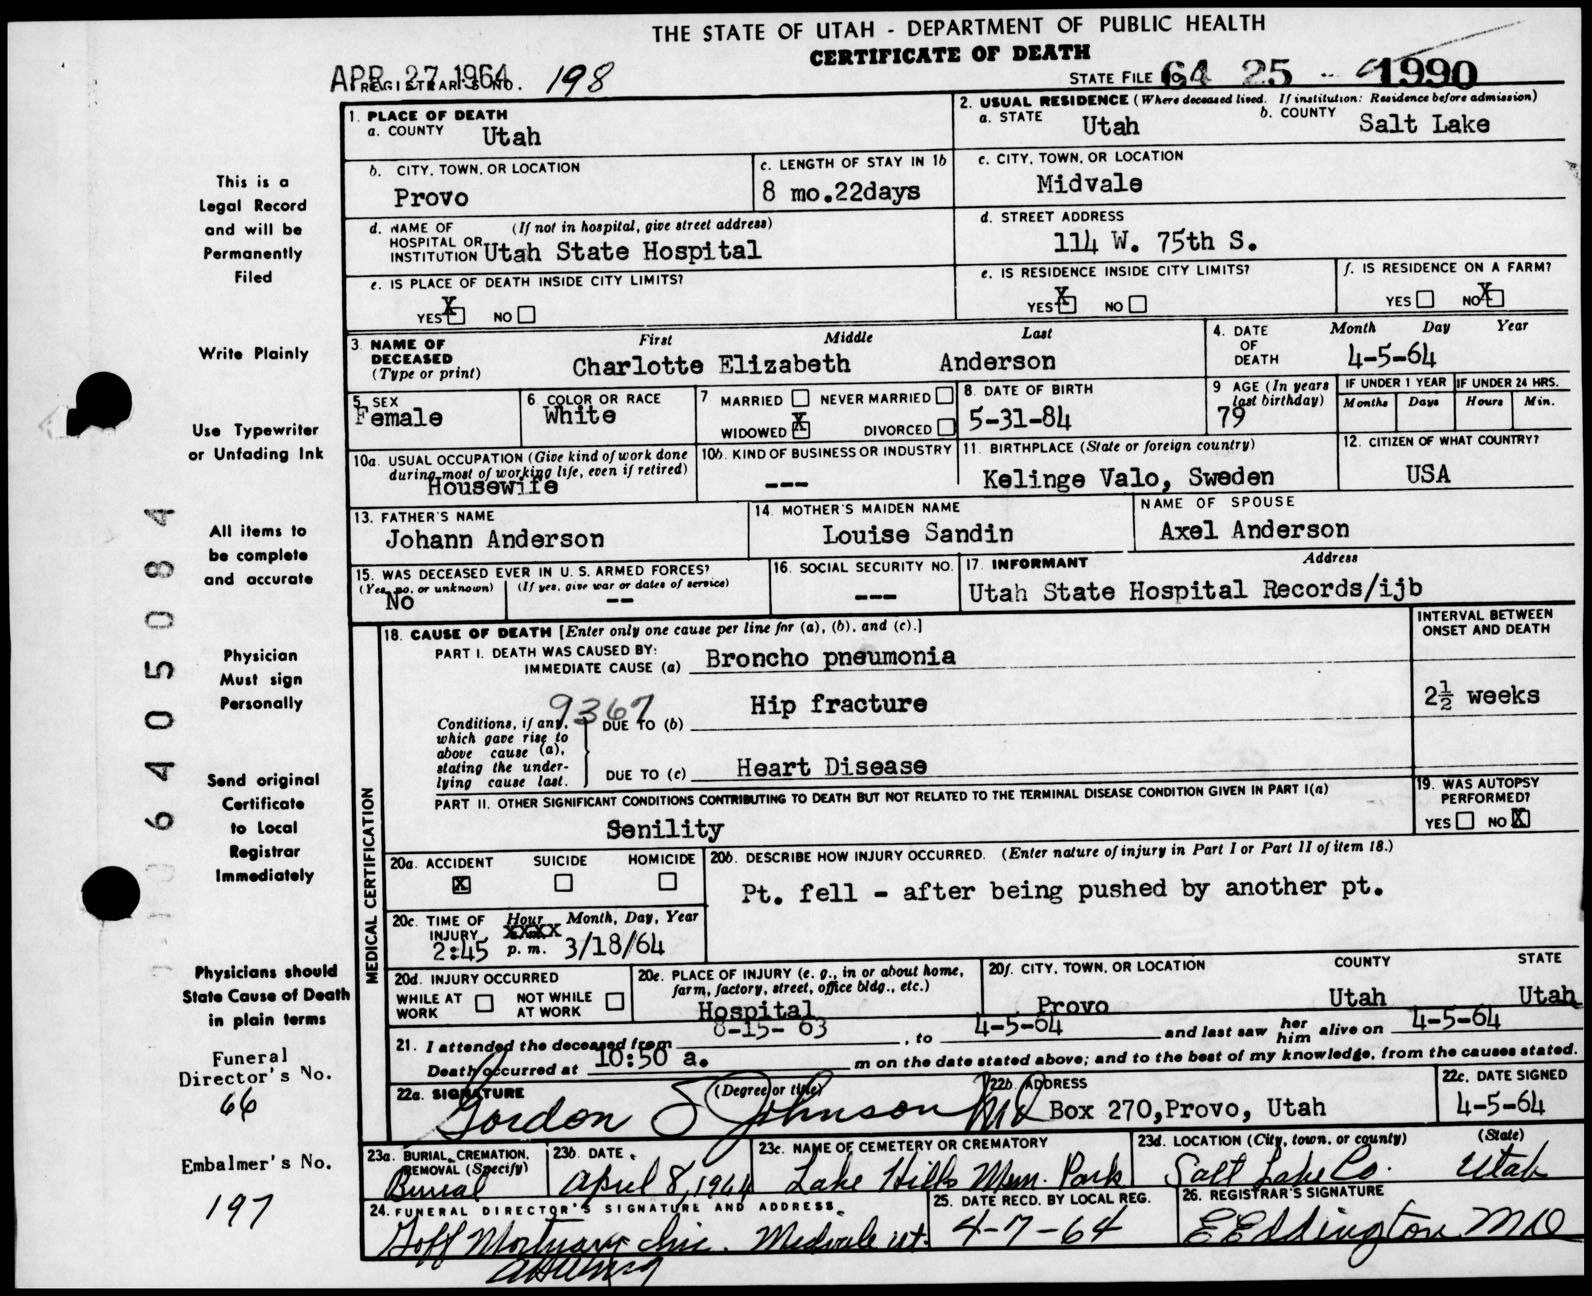 THE STATE OF UTAH - DEPARTMENT OF PUBLIC HEALTH
CERTIFICATE OF DEATH
APR 27 1964
REGISTRAR'S NO. 198
STATE FILE NO. 64 25 - 1990
1. PLACE OF DEATH
a. COUNTY Utah
2. USUAL RESIDENCE (Where deceased lived. If institution: Residence before admission)
a. STATE Utah b. COUNTY Salt Lake
b. CITY, TOWN, OR LOCATION Provo
c. LENGTH OF STAY IN 1b 8 mo.22days
c. CITY, TOWN, OR LOCATION Midvale
d. NAME OF HOSPITAL OR INSTITUTION (If not in hospital, give street address) Utah State Hospital
d. STREET ADDRESS 114 W. 75th S.
e. IS PLACE OF DEATH INSIDE CITY LIMITS?
YES X NO
e. IS RESIDENCE INSIDE CITY LIMITS?
YES X NO
f. IS RESIDENCE ON A FARM?
YES NO X
3. NAME OF DECEASED (Type or print) First Middle Last
Charlotte Elizabeth Anderson
4. DATE OF DEATH Month Day Year
4-5-64
5. SEX Female
6. COLOR OR RACE White
7 MARRIED NEVER MARRIED
WIDOWED X DIVORCED
8. DATE OF BIRTH 5-31-84
9 AGE (In years last birthday) 79
IF UNDER 1 YEAR Months Days
IF UNDER 24 HRS. Hours Min.
10a. USUAL OCCUPATION (Give kind of work done during most of working life, even if retired)
Housewife
10b. KIND OF BUSINESS OR INDUSTRY
---
11. BIRTHPLACE (State or foreign country)
Kelinge Valo, Sweden
12. CITIZEN OF WHAT COUNTRY?
USA
13. FATHER'S NAME
Johann Anderson
14. MOTHER'S MAIDEN NAME
Louise Sandin
NAME OF SPOUSE
Axel Anderson
15. WAS DECEASED EVER IN U. S. ARMED FORCES?
(Yes, no, or unknown) (If yes, give war or dates of service)
No --
16. SOCIAL SECURITY NO.
---
17. INFORMANT Address
Utah State Hospital Records/ijb
MEDICAL CERTIFICATION
18. CAUSE OF DEATH [Enter only one cause per line for (a), (b), and (c).]
INTERVAL BETWEEN ONSET AND DEATH
PART I. DEATH WAS CAUSED BY:
IMMEDIATE CAUSE (a) Broncho pneumonia
9367
Conditions, if any, which gave rise to above cause (a), stating the underlying cause last.
DUE TO (b) Hip fracture 2½ weeks
DUE TO (c) Heart Disease
PART II. OTHER SIGNIFICANT CONDITIONS CONTRIBUTING TO DEATH BUT NOT RELATED TO THE TERMINAL DISEASE CONDITION GIVEN IN PART I(a)
Senility
19. WAS AUTOPSY PERFORMED?
YES NO X
20a. ACCIDENT SUICIDE HOMICIDE
X
20b. DESCRIBE HOW INJURY OCCURRED. (Enter nature of injury in Part I or Part II of item 18.)
Pt. fell - after being pushed by another pt.
20c. TIME OF INJURY Hour Month, Day, Year
2:45 p. m. 3/18/64
20d. INJURY OCCURRED
WHILE AT WORK NOT WHILE AT WORK
20e. PLACE OF INJURY (e. g., in or about home, farm, factory, street, office bldg., etc.)
Hospital
20f. CITY, TOWN, OR LOCATION COUNTY STATE
Provo Utah Utah
21. I attended the deceased from 8-15-63, to 4-5-64 and last saw her him alive on 4-5-64
Death occurred at 10:50 a. m on the date stated above; and to the best of my knowledge, from the causes stated.
22a. SIGNATURE (Degree or title)
Gordon S Johnson MD
22b. ADDRESS
Box 270,Provo, Utah
22c. DATE SIGNED
4-5-64
23a. BURIAL, CREMATION, REMOVAL (Specify)
Burial
23b. DATE
April 8, 1964
23c. NAME OF CEMETERY OR CREMATORY
Lake Hills Mem. Park
23d. LOCATION (City, town, or county) (State)
Salt Lake Co. Utah
24. FUNERAL DIRECTOR'S SIGNATURE AND ADDRESS
Goff Mortuary Inc. Midvale Ut.
25. DATE RECD. BY LOCAL REG.
4-7-64
26. REGISTRAR'S SIGNATURE
E E Eddington MD
This is a
Legal Record
and will be
Permanently
Filed
Write Plainly
Use Typewriter
or Unfading Ink
All items to
be complete
and accurate
Physician
Must sign
Personally
Send original
Certificate
to Local
Registrar
Immediately
Physicians should
State Cause of Death
in plain terms
Funeral
Director's No.
66
Embalmer's No.
197